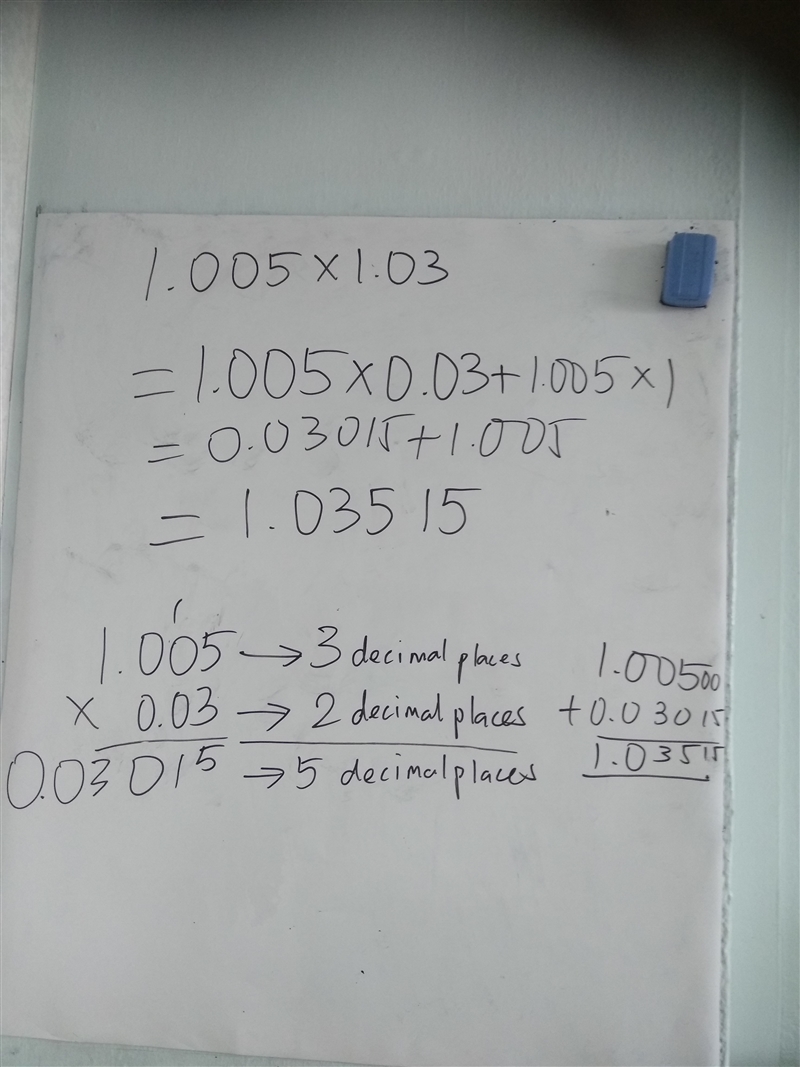 1.005 × 1.03
= 1.005 × 0.03 + 1.005 × 1
= 0.03015 + 1.005
= 1.03515
1
1.005 → 3 decimal places
× 0.03 → 2 decimal places
0.03015 → 5 decimal places
1.00500
+ 0.03015
1.03515